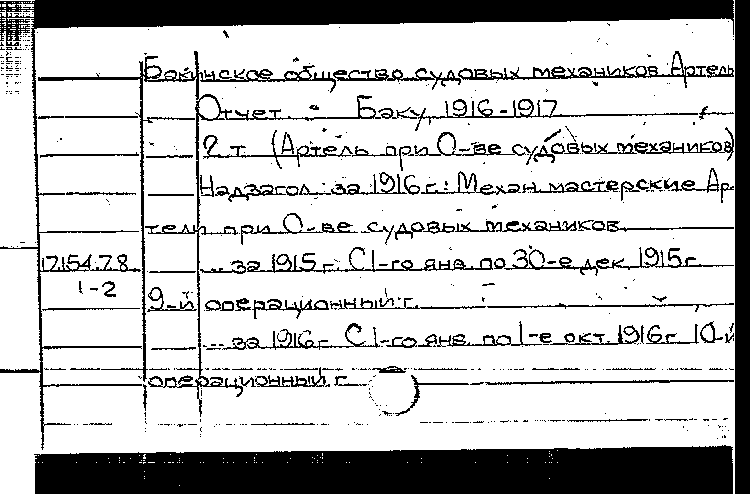 Бакинское общество судовых механиков Артель
Отчет. - Баку, 1916-1917
2 т. (Артель при О-ве судовых механиков)
Надзагол. за 1916 г.: Механ. мастерские Ар-
тели при О-ве судовых механиков.
17.154.7.8
1-2
... за 1915 г. С 1-го янв. по 30-е дек. 1915 г.
9-й операционный г.
... за 1916 г. С 1-го янв. по 1-е окт. 1916 г. 10-й
операционный г.